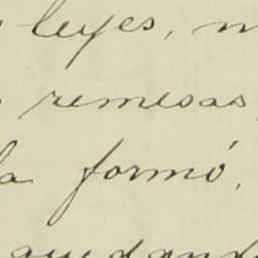 leyes,
remesas
la formó,
quedando